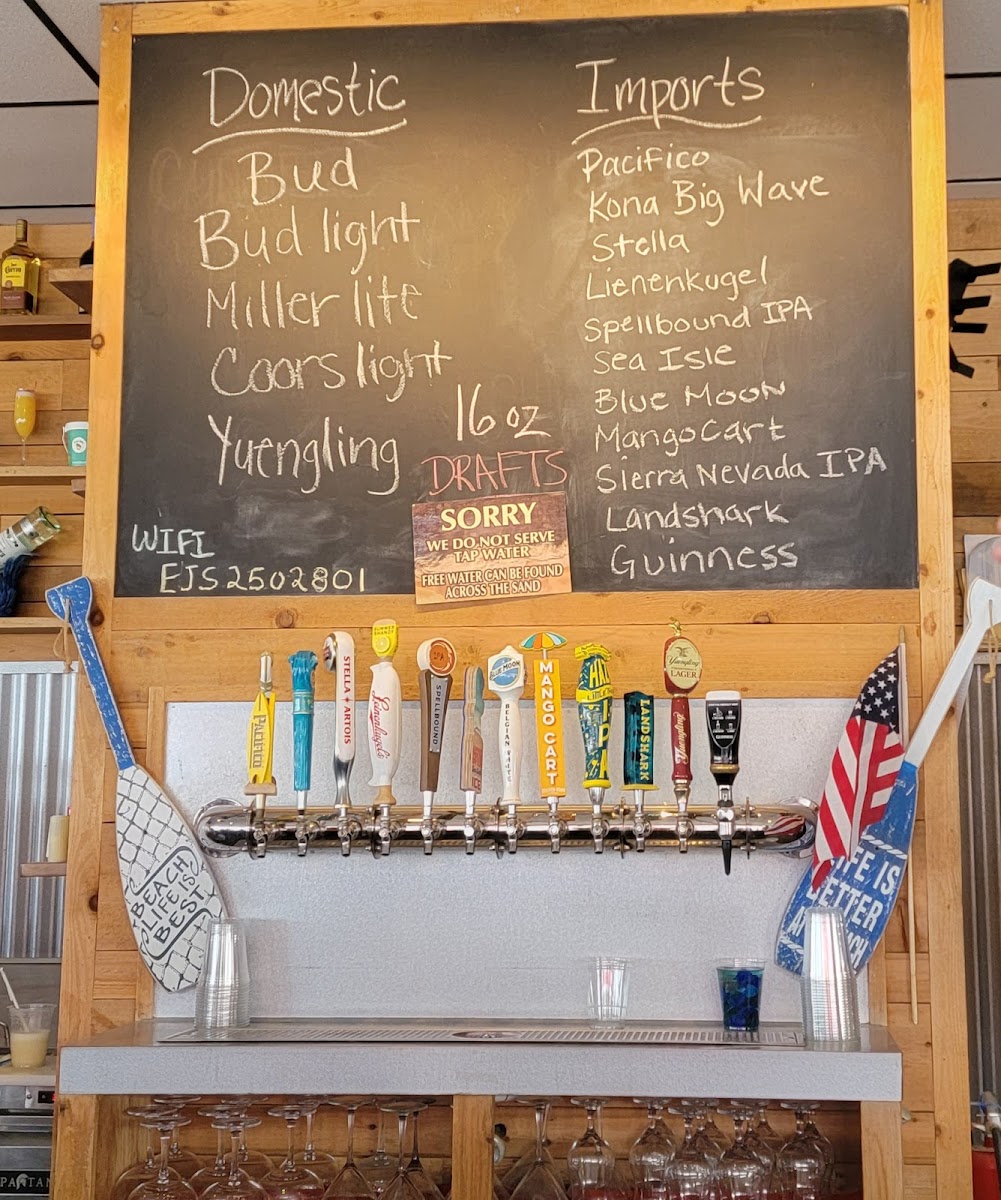 Domestic
Bud
Bud light
Miller lite
Coors light
Yuengling
16 oz
DRAFTS
Imports
Pacifico
Kona Big Wave
Stella
Lienenkugel
Spellbound IPA
Sea Isle
Blue Moon
Mango Cart
Sierra Nevada IPA
Landshark
Guinness
WIFI
EJS2502801
SORRY
WE DO NOT SERVE
TAP WATER
FREE WATER CAN BE FOUND
ACROSS THE SAND
PACIFICO
STELLA ARTOIS
SUMMER
SHANDY
Leinenkugel's
IPA
SPELLBOUND
BLUE MOON
BELGIAN WHITE
MANGO CART
IPA
LANDSHARK
Yuengling
LAGER
Yuengling
BEACH
LIFE IS
BEST
LIFE IS
BETTER
AT